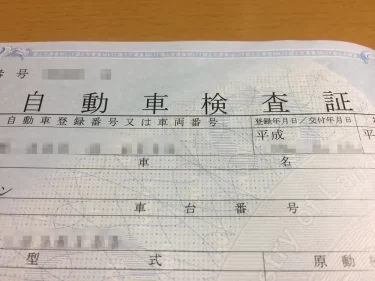 番 号
自 動 車 検 査 証
自動車登録番号又は車両番号 登録年月日／交付年月日
平成 平
車 名
ン
車 台 番 号
型 式 原 動